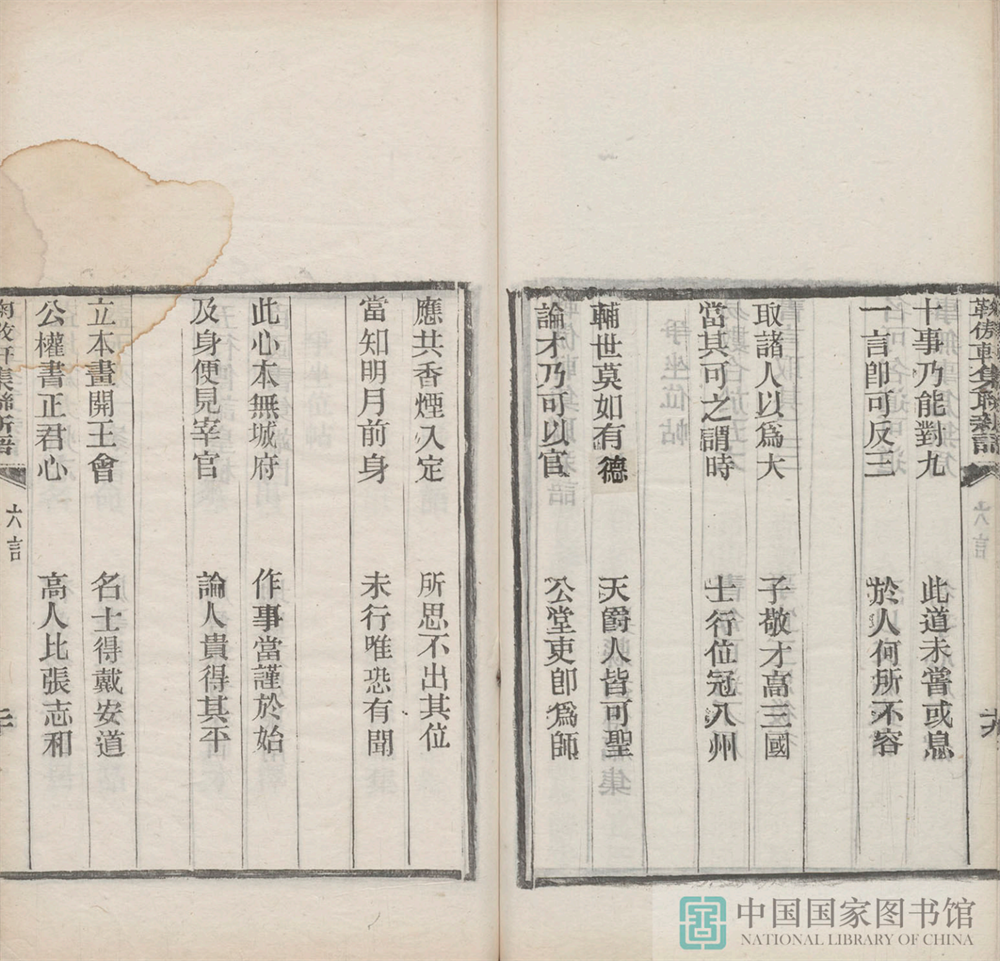 十事乃能對九　此道未嘗或息
一言卽可反三　於人何所不容
取諸人以爲大　子敬才高三國
當其可之謂時　士行位冠八州
輔世莫如有德　天爵人皆可聖
論才乃可以官　公堂吏卽爲師
應共香煙入定　所思不出其位
當知明月前身　未行唯恐有聞
此心本無城府　作事當謹於始
及身便見宰官　論人貴得其平
立本畫開王會　名士得戴安道
公權書正君心　高人比張志和
六言
六言
中国国家图书馆
NATIONAL LIBRARY OF CHINA